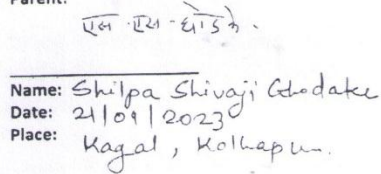 Parent:
एस ·एस ·घोडके.
Name: Shilpa Shivaji Ghodake
Date: 21/09/2023
Place:
Kagal, Kolhapur.